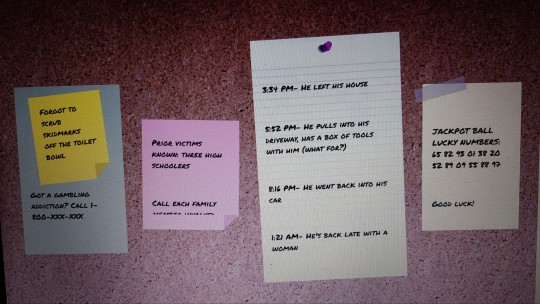 FORGOT TO
SCRUB
SKIDMARKS
OFF THE TOILET
BOWL
GOT A GAMBLING
ADDICTION? CALL 1-
800-XXX-XXX
PRIOR VICTIMS
KNOWN: THREE HIGH
SCHOOLERS
CALL EACH FAMILY
3:34 PM- HE LEFT HIS HOUSE
5:52 PM- HE PULLS INTO HIS
DRIVEWAY, HAS A BOX OF TOOLS
WITH HIM (WHAT FOR?)
8:16 PM- HE WENT BACK INTO HIS
CAR
1:21 AM- HE'S BACK LATE WITH A
WOMAN
JACKPOT BALL
LUCKY NUMBERS:
65 82 93 01 38 20
52 89 09 55 88 97
GOOD LUCK!